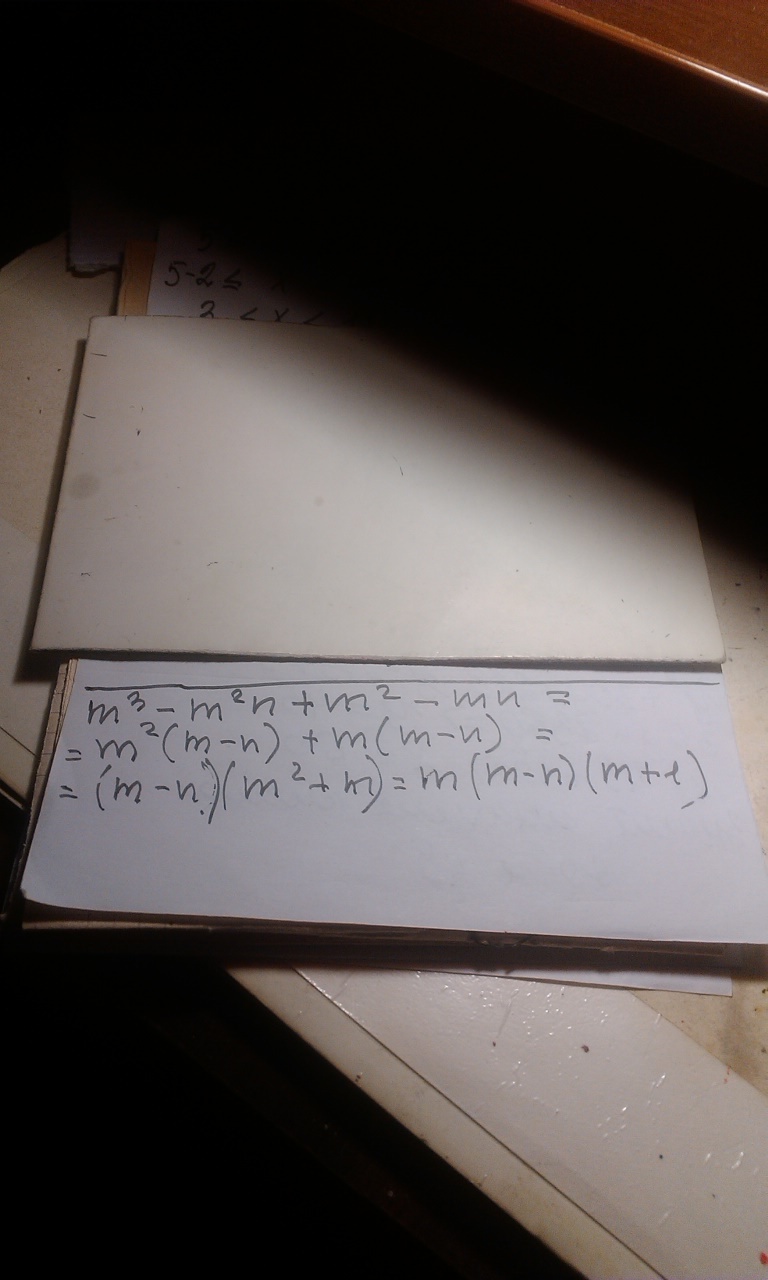 5-2 ≤
3 < x <
m³ - m²n + m² - mn =
= m²(m-n) + m(m-n) =
= (m-n)(m²+m) = m(m-n)(m+1)